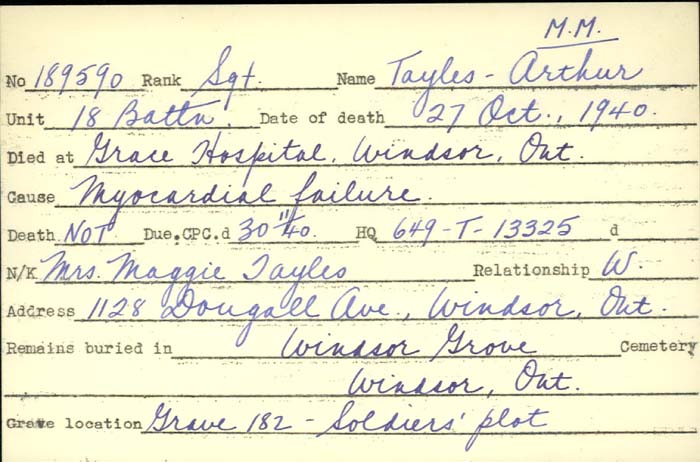 M.M.
No 189590 Rank Sgt. Name Tayles - Arthur
Unit 18 Battn. Date of death 27 Oct., 1940.
Died at Grace Hospital, Windsor, Ont.
Cause Myocardial failure.
Death NOT Due.CPC.d 30/11/40. HQ 649-T-13325 d
N/K Mrs. Maggie Tayles Relationship W.
Address 1128 Dougall Ave., Windsor, Ont.
Remains buried in Windsor Grove Cemetery
Windsor, Ont.
Grave location Grave 182 - Soldiers' plot